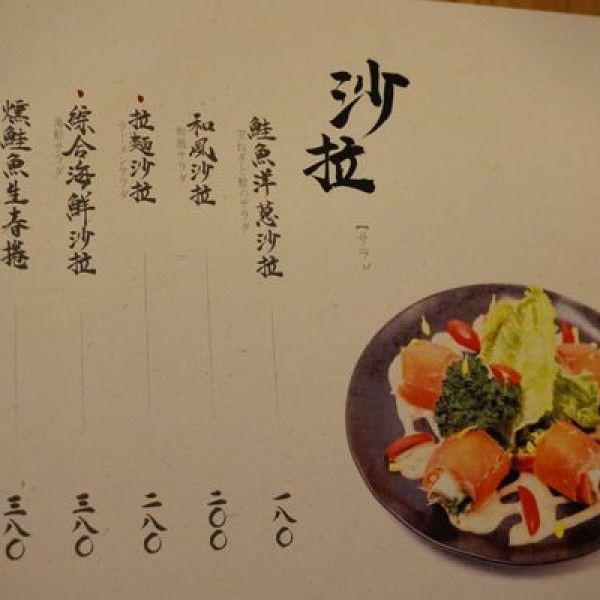 沙拉
【サラダ
鮭魚洋蔥沙拉
玉ねぎと鮭のサラダ
一八〇
和風沙拉
和風サラダ
二〇〇
拉麵沙拉
ラーメンサラダ
二八〇
綜合海鮮沙拉
海鮮サラダ
三八〇
燻鮭魚生春捲
三八〇